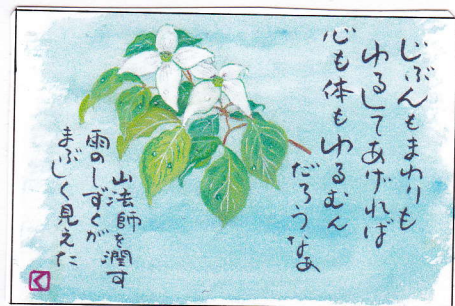 じぶんもまわりも
ゆるしてあげれば
心も体もゆるむん
だろうなぁ
山法師を潤す
雨のしずくが
まぶしく見えた
く